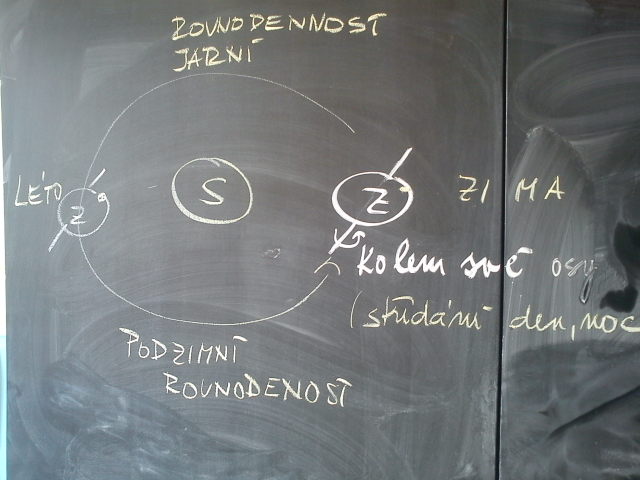 ROVNODENNOST
JARNÍ
LÉTO
Z
S
Z
ZIMA
Kolem své osy
(střídání den, noc
PODZIMNÍ
ROVNODENOST